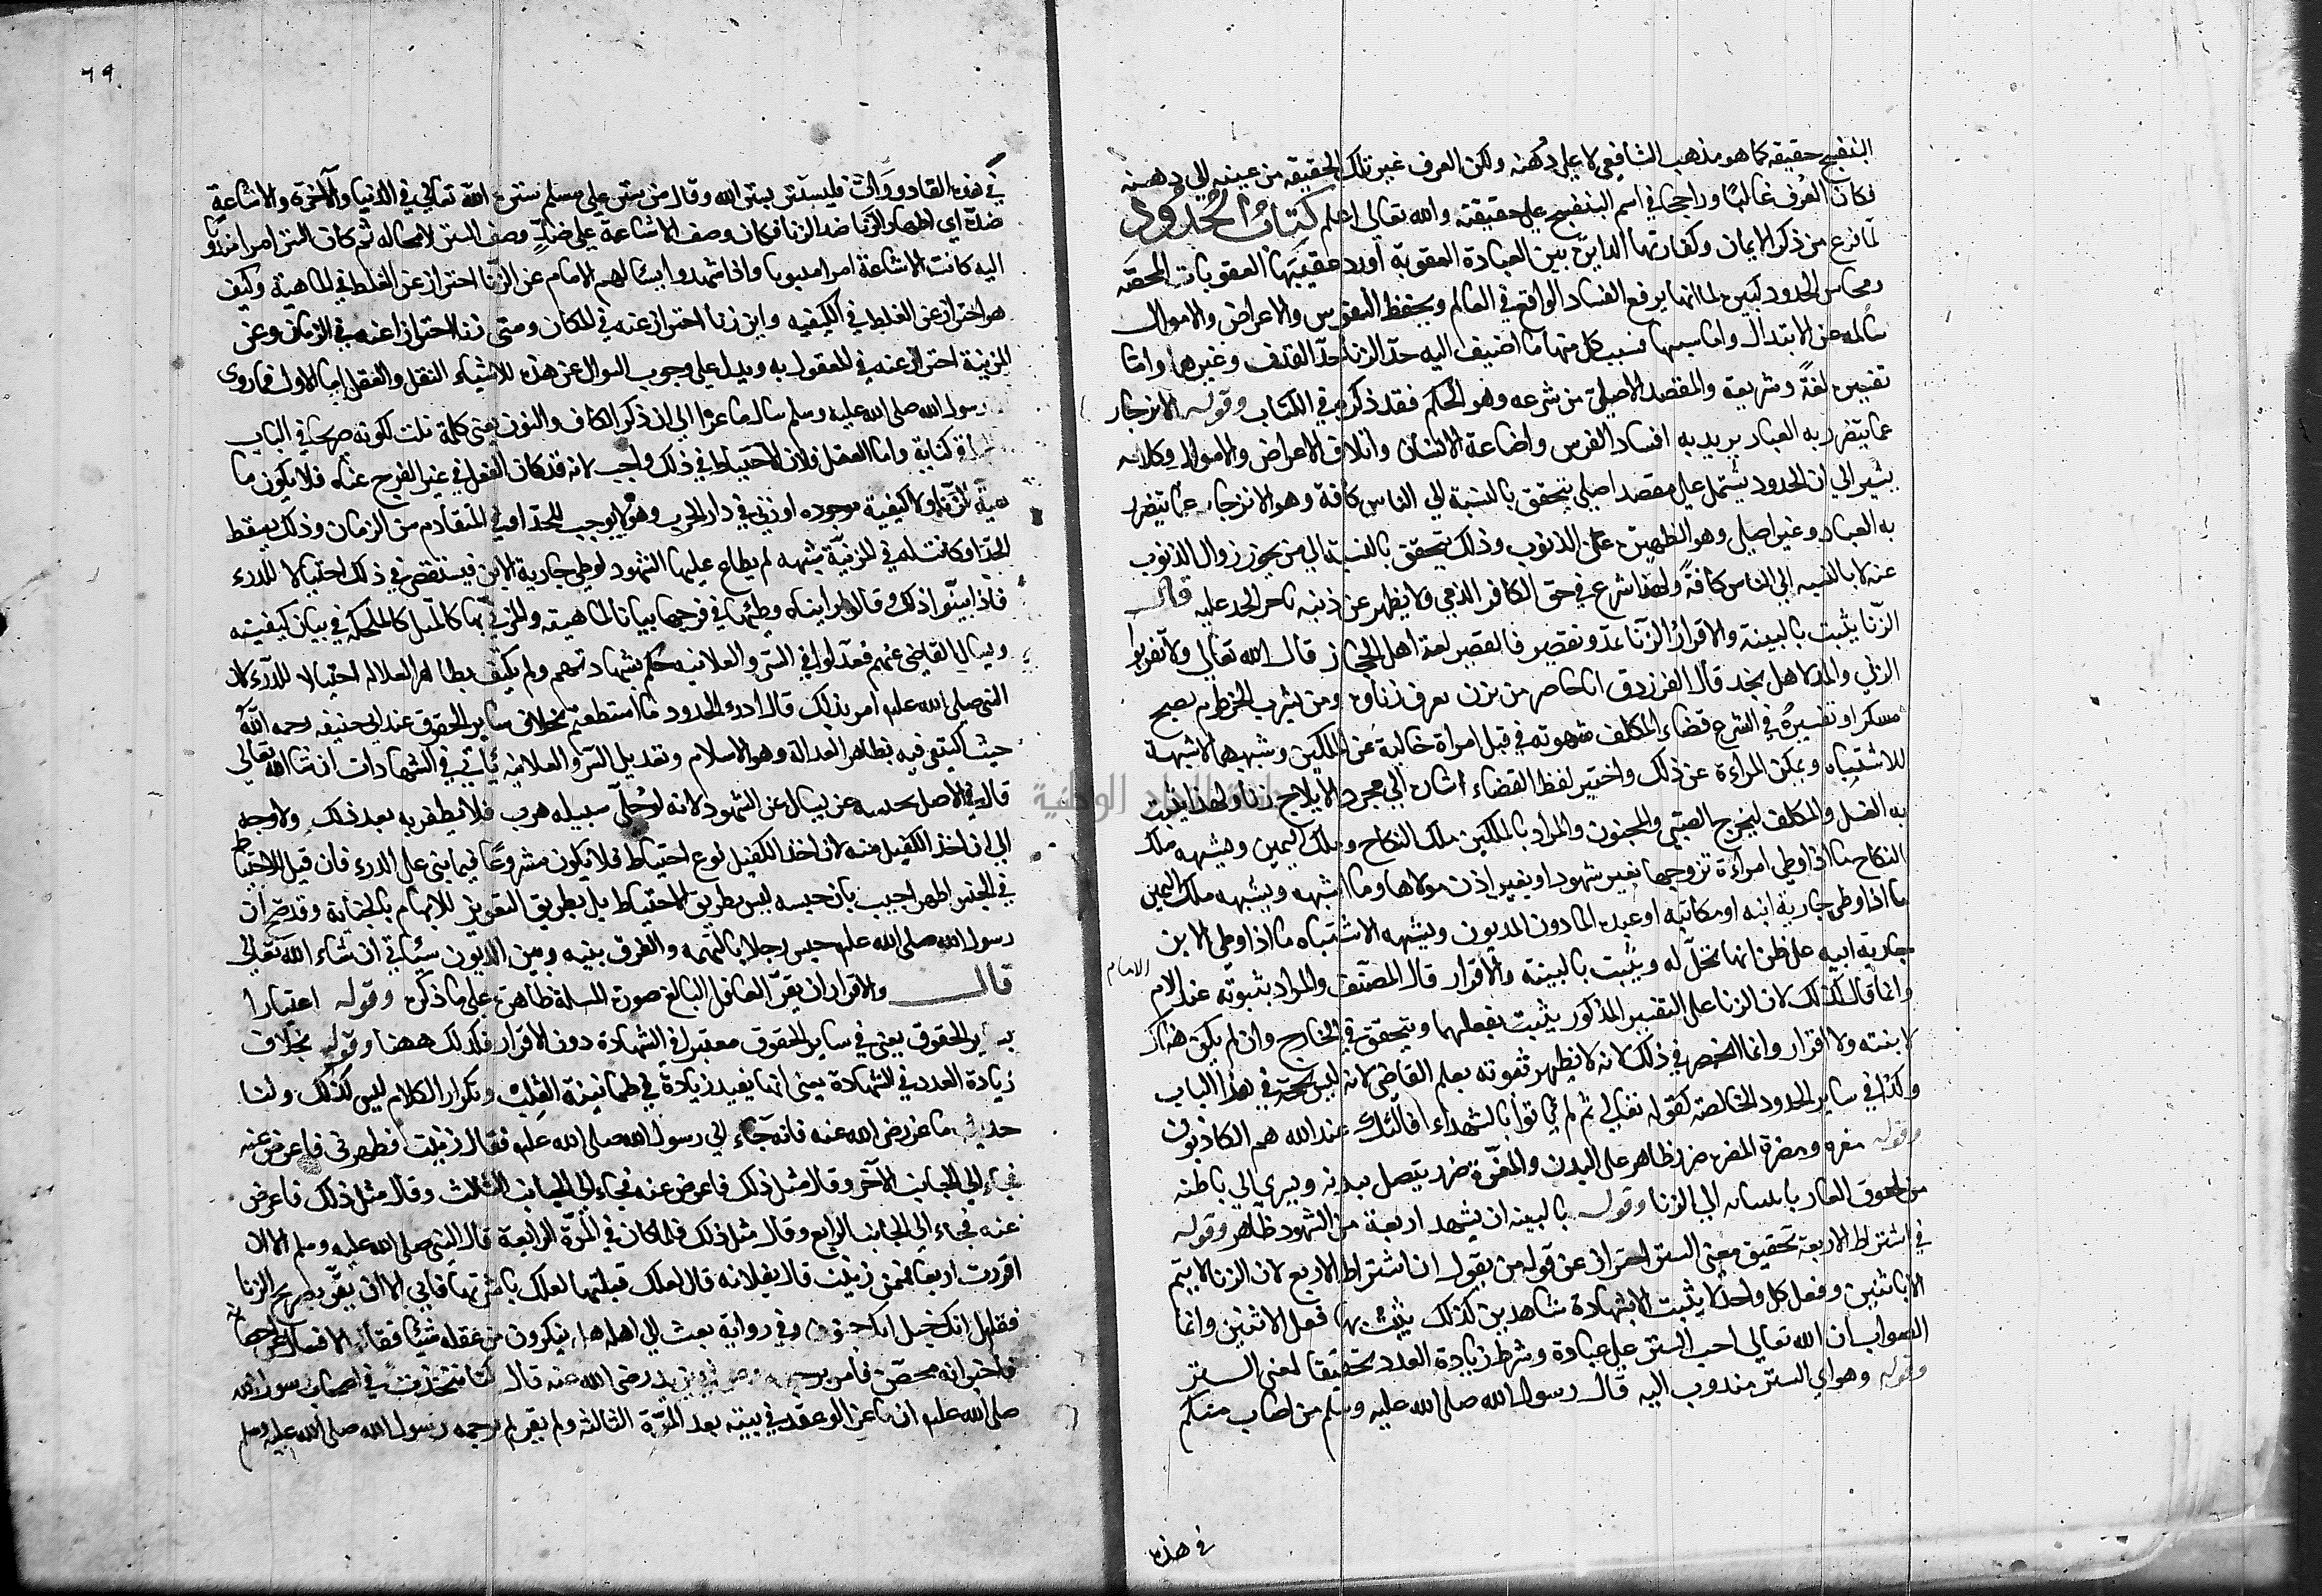 البنفسج حقيقة كما هو مذهب الشافعي لا على دهنه ولكن العرف غير تلك الحقيقة من عينه الى دهنه
فكان العرف غالبا وراجحا في اسم البنفسج على حقيقته والله تعالى اعلم كتاب الحدود
لما فرغ من ذكر الايمان وكفارتها الدايرة بين العبادة والعقوبة اورد عقيبها العقوبات المحضة
ومحاسن الحدود كثيرة لما انها يرفع الفساد الواقع في العالم ويحفظ النفوس والاعراض والاموال
سالمة عن الابتذال واما سببها فسبب كل منها ما اضيف اليه حد الزنا حد القذف وغيرها واما
تفسيره لغة وشريعة والمقصد الاصلي من شرعه وهو الحكم فقد ذكره في الكتاب وقوله الانزجار
عما يتضرر به العباد يريد به افساد الفرش واضاعة الانساب واتلاف الاعراض والاموال وكلامه
يشير الى ان الحدود يشتمل على مقصد اصلي يتحقق بالنسبة الى الناس كافة وهو الانزجار عما يتضرر
به العباد وغير اصلي وهو التطهيرة عن الذنوب وذلك يتحقق بالنسبة الى من يجوز زوال الذنوب
عنه لا بالنسبة الى الناس كافة ولهذا شرع في حق الكافر الذمي ولا يطهر عن ذنبه باجراء الحد عليه قال
الزنا يثبت بالبينة والاقرار الزنا يمد ويقصر فالقصر لغة اهل الحجاز قال الله تعالى ولا تقربوا
الزنى والمد لاهل نجد قال الفرزدق اباحاضر من يزن يعرف زناؤه ومن يشرب الخرطوم يصبح
مسكرا وتفسيره في الشرع قضاء المكلف شهوته في قبل امراة خالية عن الملكين وشبههما لا شبهة
للاشتباه وتمكن المراءة عن ذلك واختير لفظ القضاء اشارة الى مجرد الايلاج زنا ولهذا يثبت
به الغسل والمكلف ليخرج الصبي والمجنون والمراد بالملكين ملك النكاح وملك اليمين وشبهه ملك
النكاح ما اذا وطى امراءة تزوجها بغير شهود او بغير اذن مولاها وما اشبهه وشبهه ملك اليمين
ما اذا وطى جارية ابنه او مكاتبه او عبده الماذون المديون وشبهه الاشتباه ما اذا وطى الابن
جارية ابيه على ظن انها تحل له ويثبت بالبينة والاقرار قال المصنف والمراد بثبوته عند الامام
وانما قال كذلك لان الزنا على التفسير المذكور يثبت بفعلهما ويتحقق في الخارج وان لم يكن هناك
لا بينة ولا اقرار وانما انحصر في ذلك لانه لا يظهر ثبوته بعلم القاضي لانه ليس بحجة في هذا الباب
وكذا في ساير الحدود الخالصة كقوله تعالى ثم لم ياتوا بالشهداء فاولئك عند الله هم الكاذبون
وقوله مضرة ومعرة المضرة ضرر ظاهر على البدن والمعرة ضرر يتصل ببدنه ويسري الى باطنه
من لحوق العار بانتسابه الى الزنا وقوله بالبينة ان يشهد اربعة من الشهود ظاهر وقوله
في اشتراط الاربعة تحقيق معنى الستر احتراز عن قول من يقول ان اشتراط الاربع لان الزنا لا يتم
الا باثنين وفعل كل واحد لا يثبت الا بشهادة شاهدين كذلك يثبت بها فعل الاثنين وانما
الصواب ان الله تعالى احب الستر على عباده وشرط زيادة العدد تحقيقا لمعنى الستر
وقوله وهو اي الستر مندوب اليه قال رسول الله صلى الله عليه وسلم من اصاب منكم
في هذه
٦٩
في هذه القاذورات فليستتر بستر الله وقال من ستر على مسلم ستره الله تعالى في الدنيا والآخرة والاشاعة
ضده اي اظهار الزنا ضد الزنا فكان وصف الاشاعة على ضد وصف الستر لا محالة ثم كان الستر امرا مندوبا
اليه كانت الاشاعة امرا مندوبا واذا شهدوا يسالهم الامام عن الزنا احتراز عن الغلط في الماهية وكيف
هو احتراز عن الغلط في الكيفية واين زنا احتراز عنه في المكان ومتى زنا احتراز عنه في الزمان وعن
المزنية احتراز عنه في المفعول به ويدل على وجوب السوال عن هذه الاشياء النقل والعقل اما الاول فما روى
رسول الله صلى الله عليه وسلم سال ماعزا الى ان ذكر الكاف والنون يعنى كلمة نلت لكونه صريحا في الباب
كناية واما العقل فلان الاحتياط في ذلك واجب لانه قد كان الفعل في غير الفرج عناه فلا يكون ما
هية الزنا ولا كيفية موجودة او زنى في دار الحرب وهو لا يوجب للحد او في المتقادم من الزمان وذلك يسقط
الحد او كانت له في المزنية شبهة لم يطلع عليها الشهود كوطى جارية الابن فيستقصى في ذلك احتيالا للدرء
فاذا بينوا ذلك وقالوا رايناه وطئها في فرجها بيانا للماهية والمزنى بها كالميل في المكحلة في بيان كيفيته
ويسال القاضي عنهم فعدلوا في السر والعلانية حكم بشهادتهم ولم يكتف بظاهر العدالة احتيالا للدرء لان
النبي صلى الله عليه امر بذلك قال ادرؤا الحدود ما استطعتم بخلاف ساير الحقوق عند ابي حنيفه رحمه الله
حيث اكتفى فيه بظاهر العدالة وهو الاسلام وتعديل السر والعلانية ياتي في الشهادات ان شا الله تعالى
قال في الاصل يحبسه حتى يسال عن الشهود لانه لو خلى سبيله هرب فلا يظفر به بعد ذلك ولا وجه
الى اخذ الكفيل منه لان اخذ الكفيل نوع احتياط فلا يكون مشروعا فيما بنى على الدرء فان قيل الاحتياط
في الحبس اظهر اجيب بان حبسه ليس بطريق الاحتياط بل بطريق التعزير للاتهام بالجناية وقد صح ان
رسول الله صلى الله عليه حبس رجلا بالتهمة والفرق بينه وبين المديون سياتي ان شاء الله تعالى
قال والاقرار ان يقر العاقل البالغ صورة المسلة ظاهرة على ما ذكره وقوله اعتبارا
بساير الحقوق يعنى في ساير الحقوق معتبرا في الشهادة دون الاقرار فكذلك ههنا وقوله بخلاف
زيادة العدد في الشهادة يعنى انها يفيد زيادة في طمانينة القلب وتكرار الكلام ليس كذلك ولنا
حديث ماعز رضى الله عنه فانه جاء الى رسول الله صلى الله عليه فقال زنيت فطهرني فاعرض عنه
فجاء الى الجانب الآخر وقال مثل ذلك فاعرض عنه فجاء الى الجانب الثالث وقال مثل ذلك فاعرض
عنه فجاء الى الجانب الرابع وقال مثل ذلك فلما كان في المرة الرابعة قال النبي صلى الله عليه وسلم الان
اقررت اربعا فبمن زنيت قال بفلانه قال لعلك قبلتها لعلك باشرتها فابى الا ان يقر بصريح الزنا
فقال ابك خبل ابك جنون وفي رواية بعث الى اهله هل ينكرون من عقله شيئا فقالوا لا فسال عن احصانه
فاخبر انه محصن فامر برجمه بريدة رضى الله عنه قال كنا نتحدث في اصحاب رسول الله
صلى الله عليه ان ماعزا لو قعد في بيته بعد المرة الثالثة ولم يقر لم يرجمه رسول الله صلى الله عليه وسلم